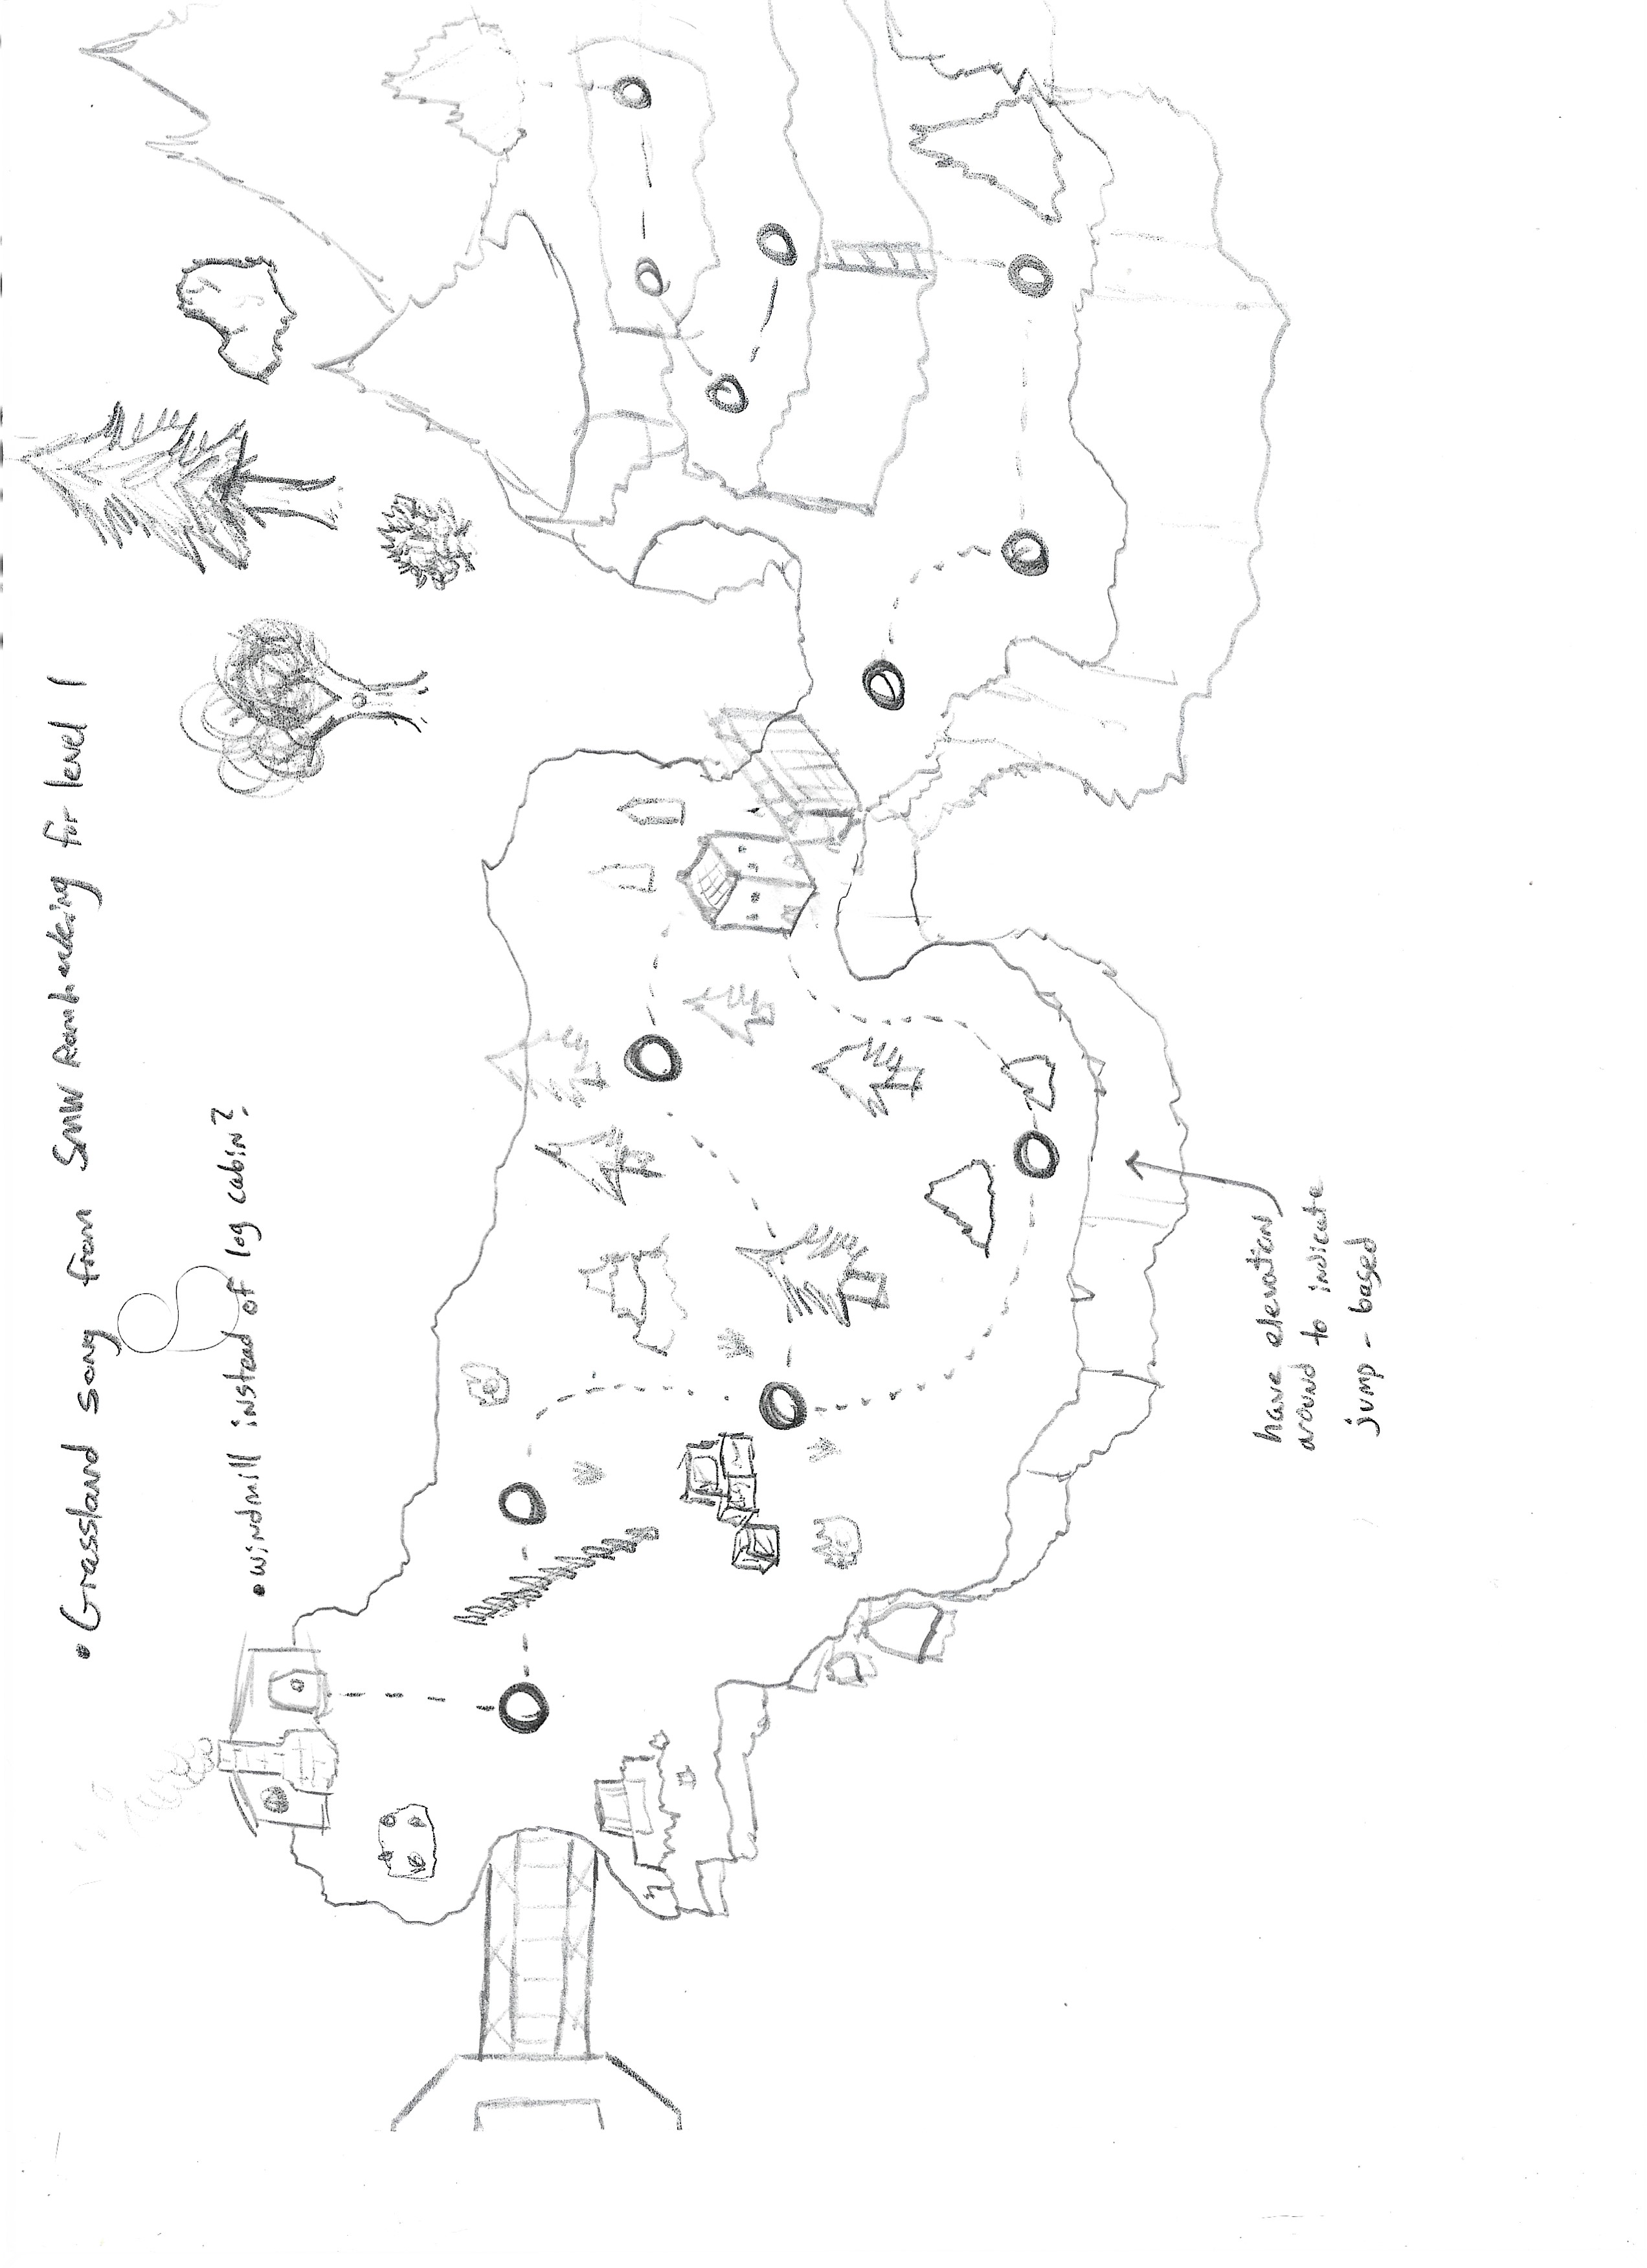 • Grassland song from SMW Romhacking for level 1
• windmill instead of log cabin?
have elevation
around to indicate
jump - based